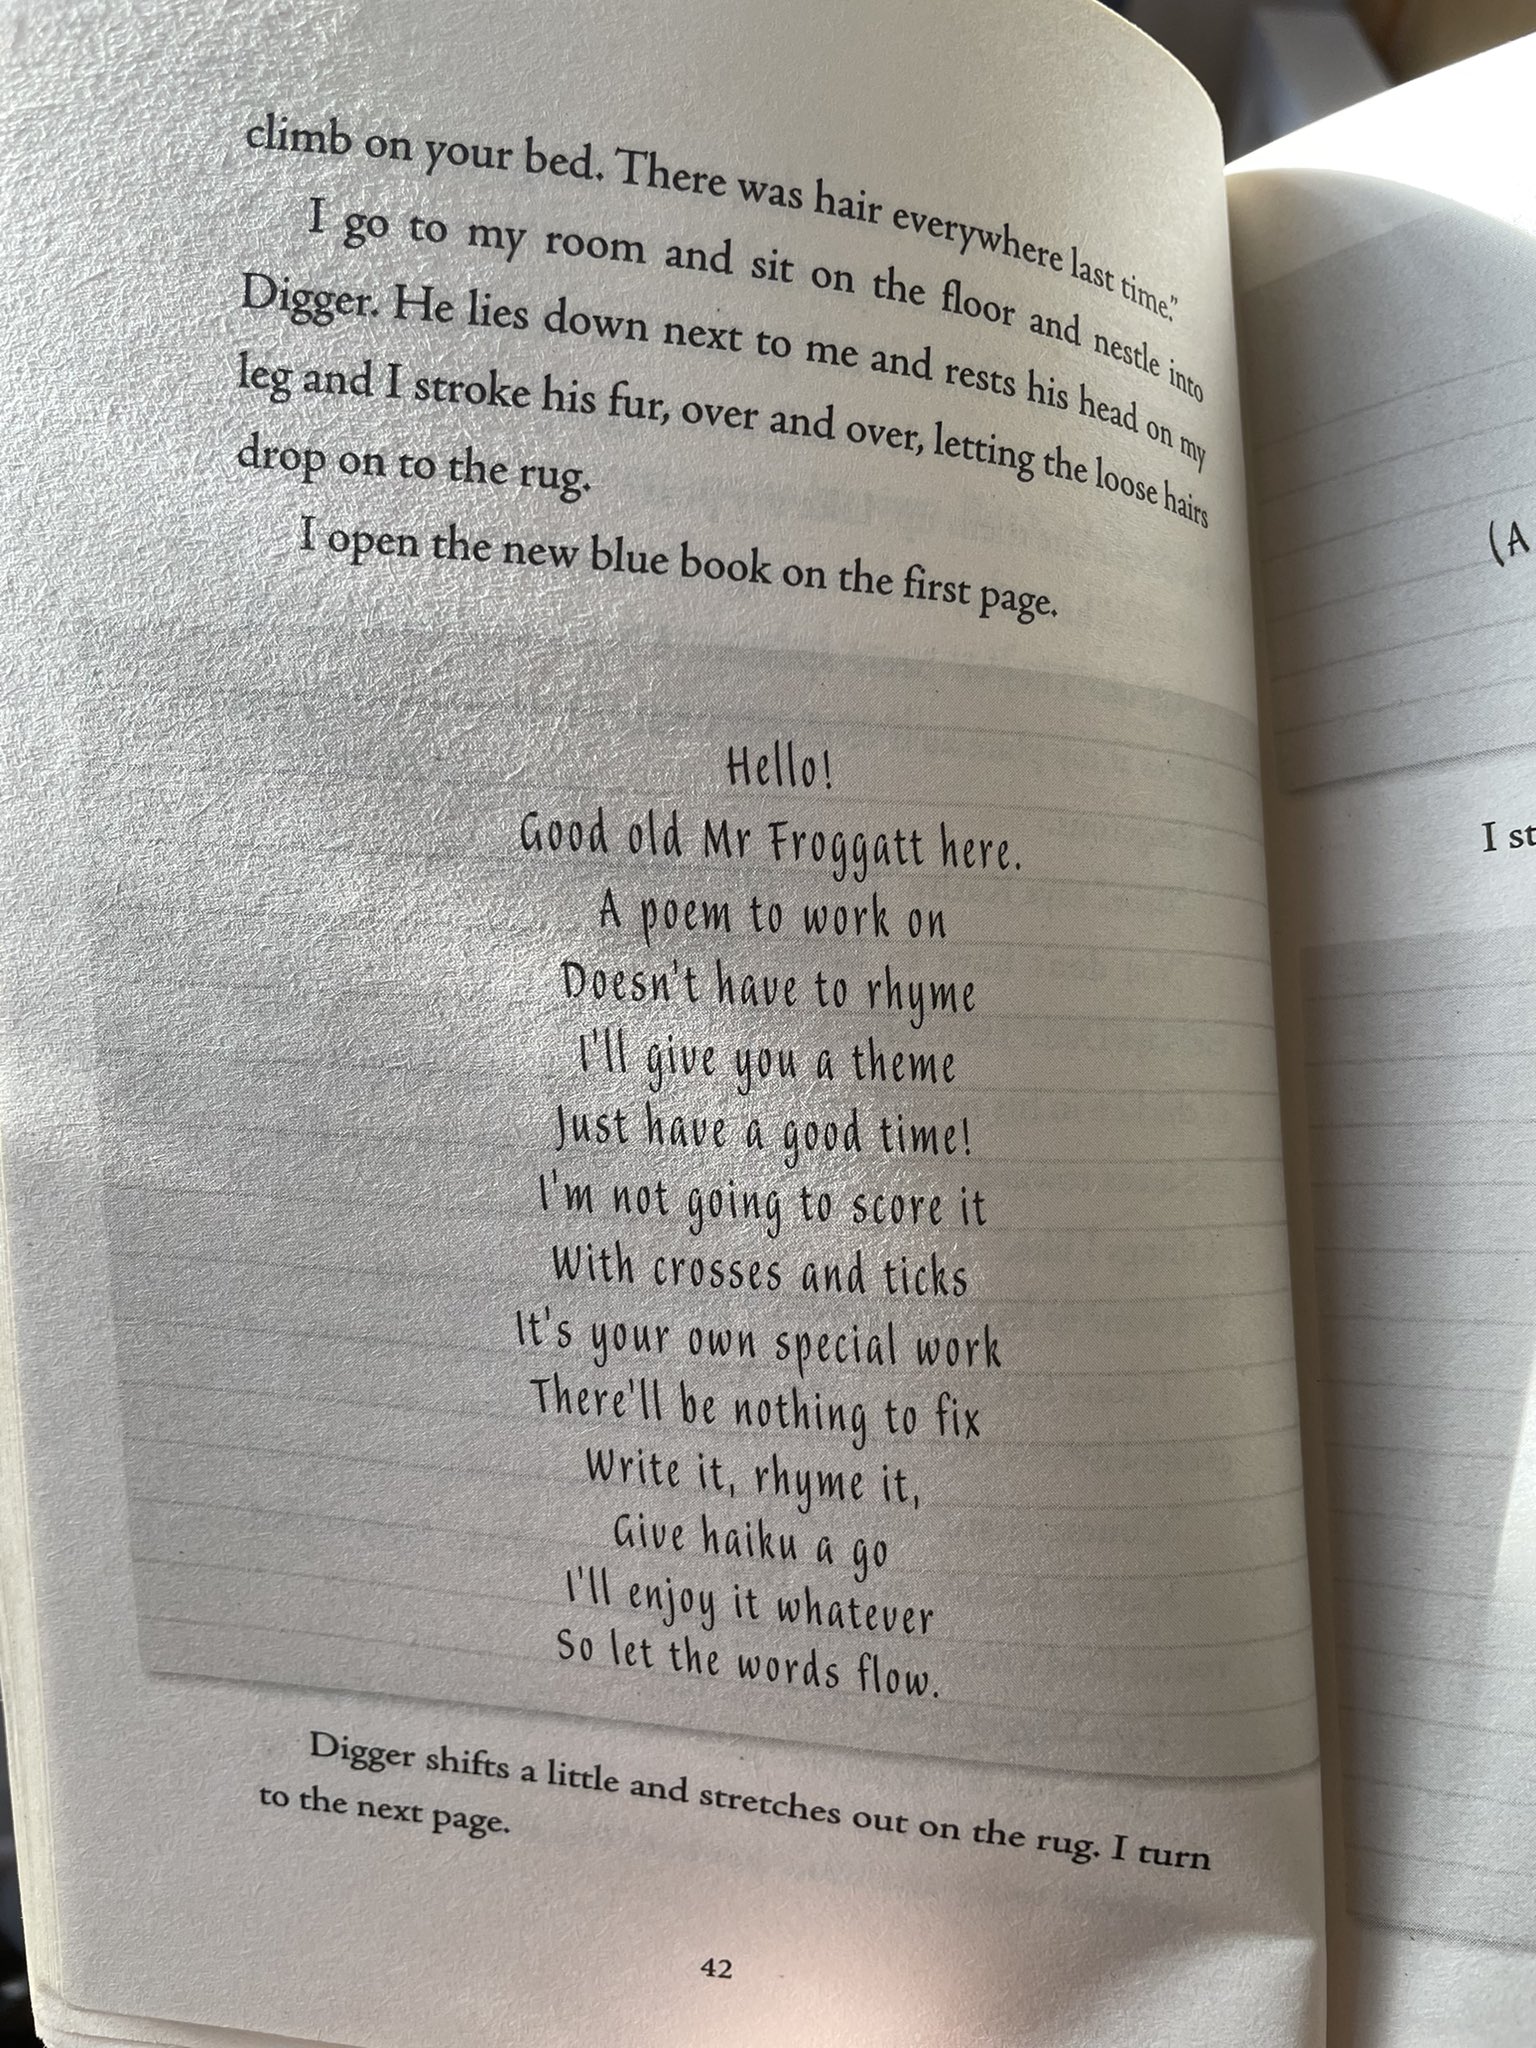 climb on your bed. There was hair everywhere last time.”
I go to my room and sit on the floor and nestle into
Digger. He lies down next to me and rests his head on my
leg and I stroke his fur, over and over, letting the loose hairs
drop on to the rug.
I open the new blue book on the first page.
Hello!
Good old Mr Froggatt here.
A poem to work on
Doesn't have to rhyme
I'll give you a theme
Just have a good time!
I'm not going to score it
With crosses and ticks
It's your own special work
There'll be nothing to fix
Write it, rhyme it,
Give haiku a go
I'll enjoy it whatever
So let the words flow.
Digger shifts a little and stretches out on the rug. I turn
to the next page.
42
(A
I st